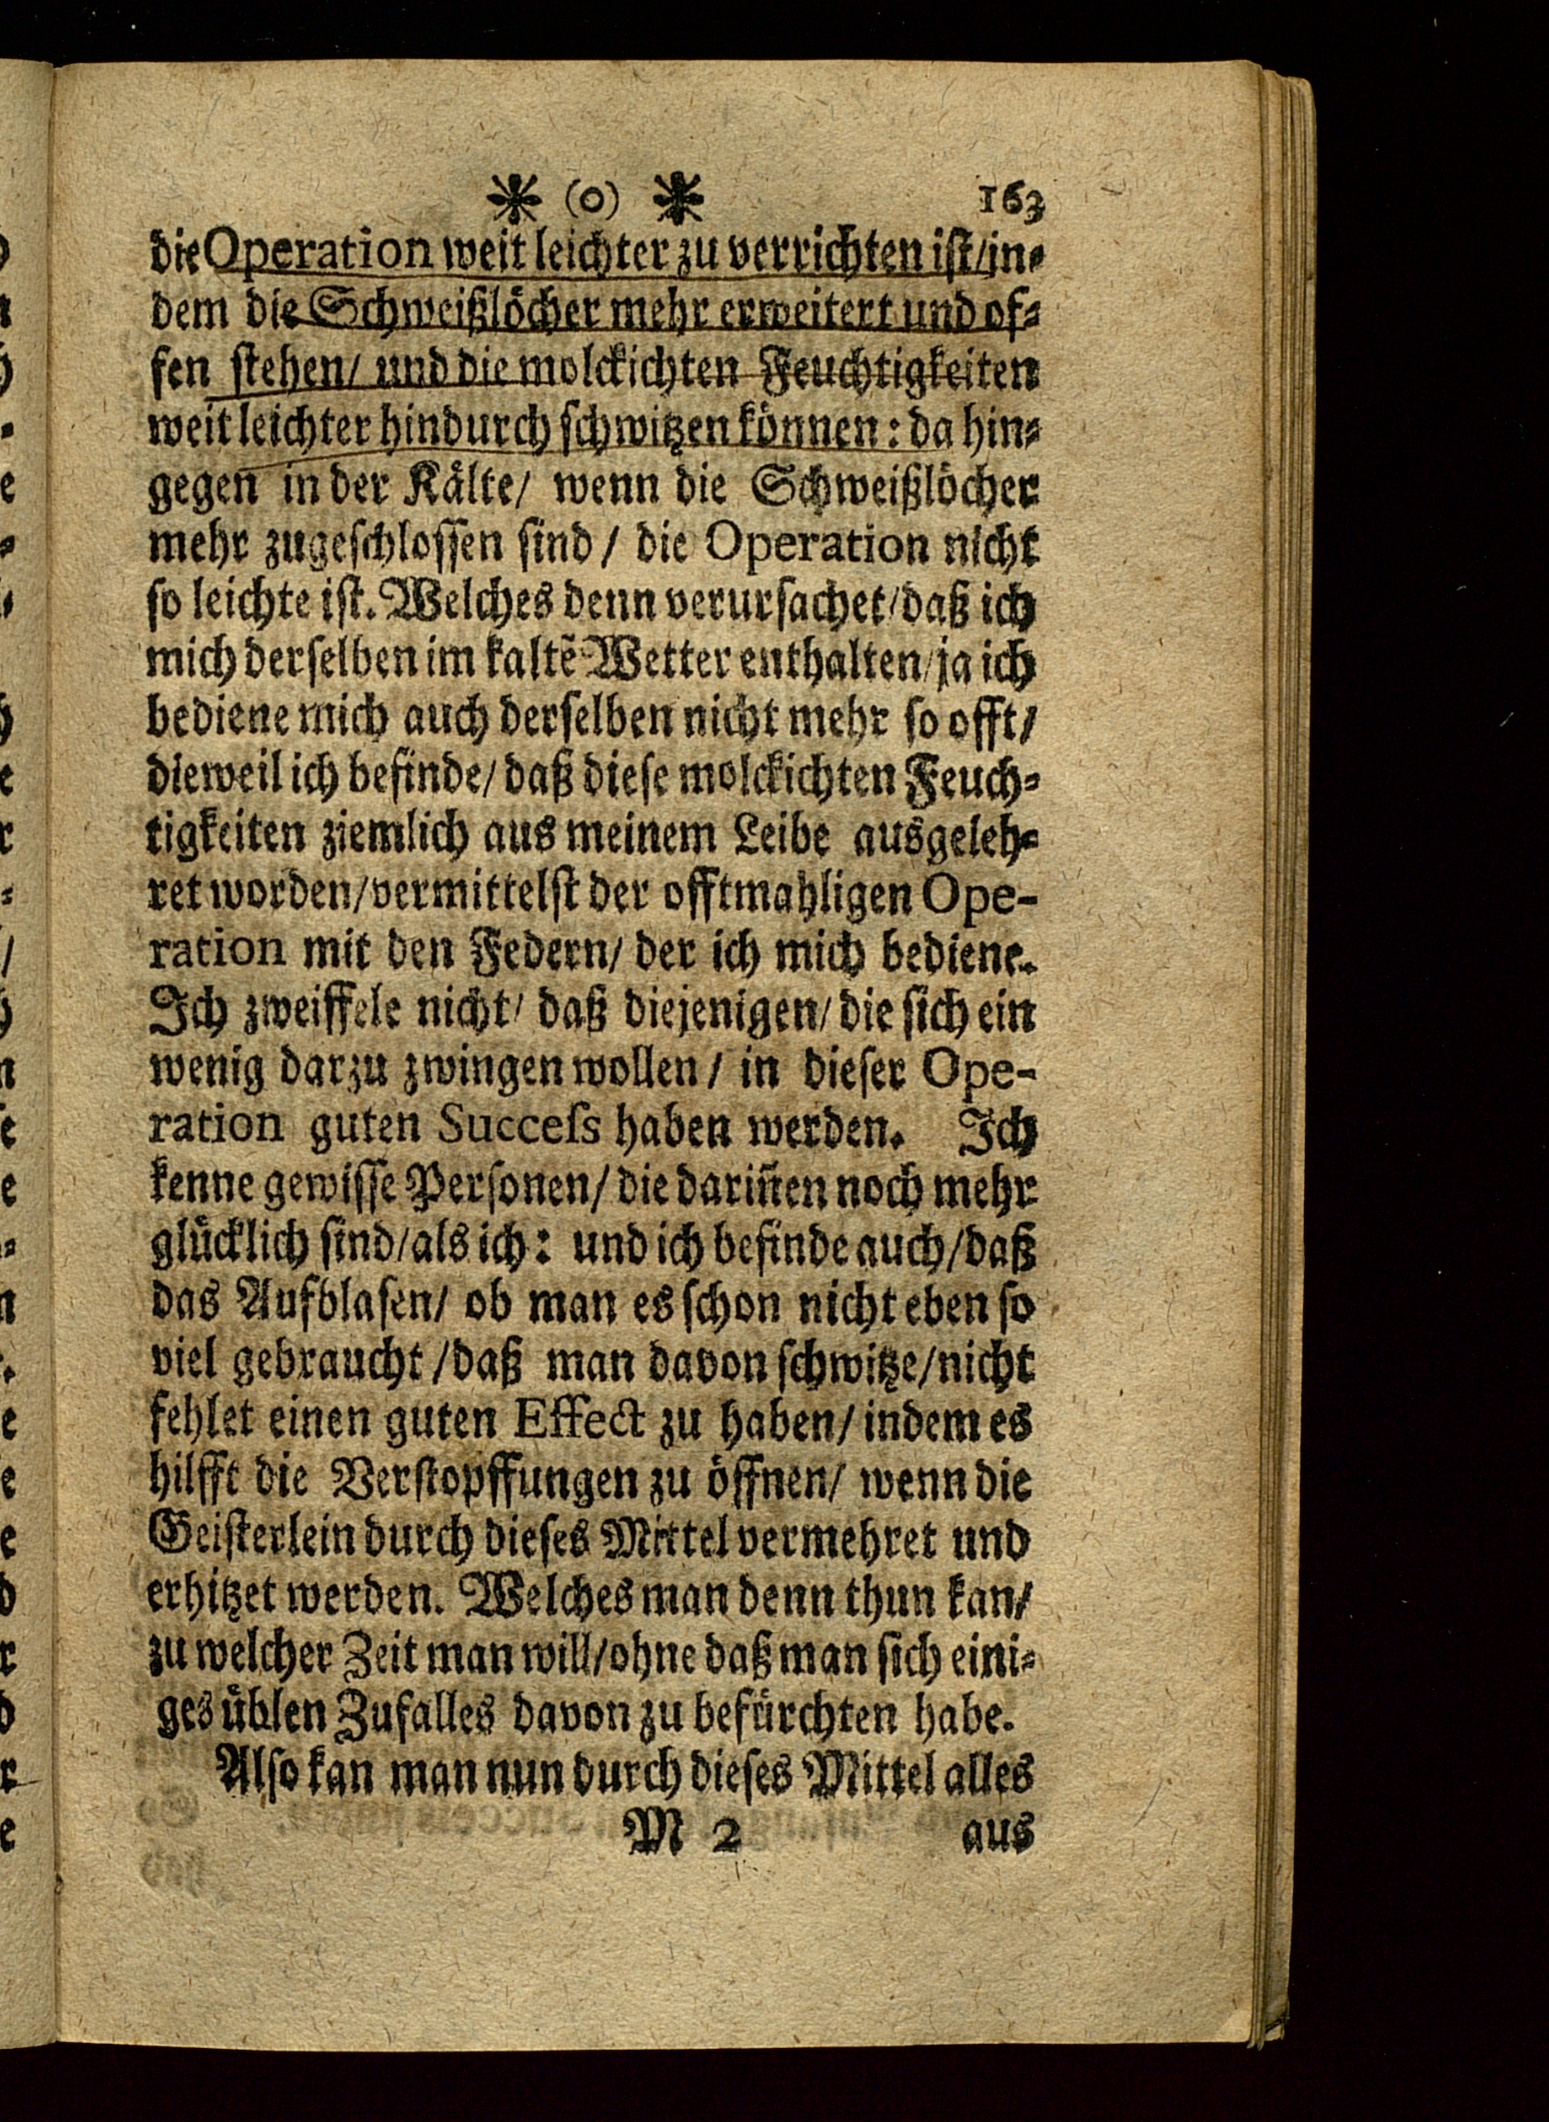 * (o) * 163
die Operation weit leichter zu verrichten ist/in-
dem die Schweißlöcher mehr erweitert und of-
fen stehen/ und die molckichten Feuchtigkeiten
weit leichter hindurch schwitzen können: da hin-
gegen in der Kälte/ wenn die Schweißlöcher
mehr zugeschlossen sind/ die Operation nicht
so leichte ist. Welches denn verursachet/daß ich
mich derselben im kaltẽ Wetter enthalten/ja ich
bediene mich auch derselben nicht mehr so offt/
dieweil ich befinde/ daß diese molckichten Feuch-
tigkeiten ziemlich aus meinem Leibe ausgeleh-
ret worden/vermittelst der offtmahligen Ope-
ration mit den Federn/ der ich mich bediene.
Ich zweiffele nicht/ daß diejenigen/ die sich ein
wenig darzu zwingen wollen/ in dieser Ope-
ration guten Success haben werden. Ich
kenne gewisse Personen/ die dariñen noch mehr
glücklich sind/als ich: und ich befinde auch/daß
das Aufblasen/ ob man es schon nicht eben so
viel gebraucht/daß man davon schwitze/nicht
fehlet einen guten Effect zu haben/ indem es
hilfft die Verstopffungen zu öffnen/ wenn die
Geisterlein durch dieses Mittel vermehret und
erhitzet werden. Welches man denn thun kan/
zu welcher Zeit man will/ohne daß man sich eini-
ges üblen Zufalles davon zu befürchten habe.
Also kan man nun durch dieses Mittel alles
M 2 aus